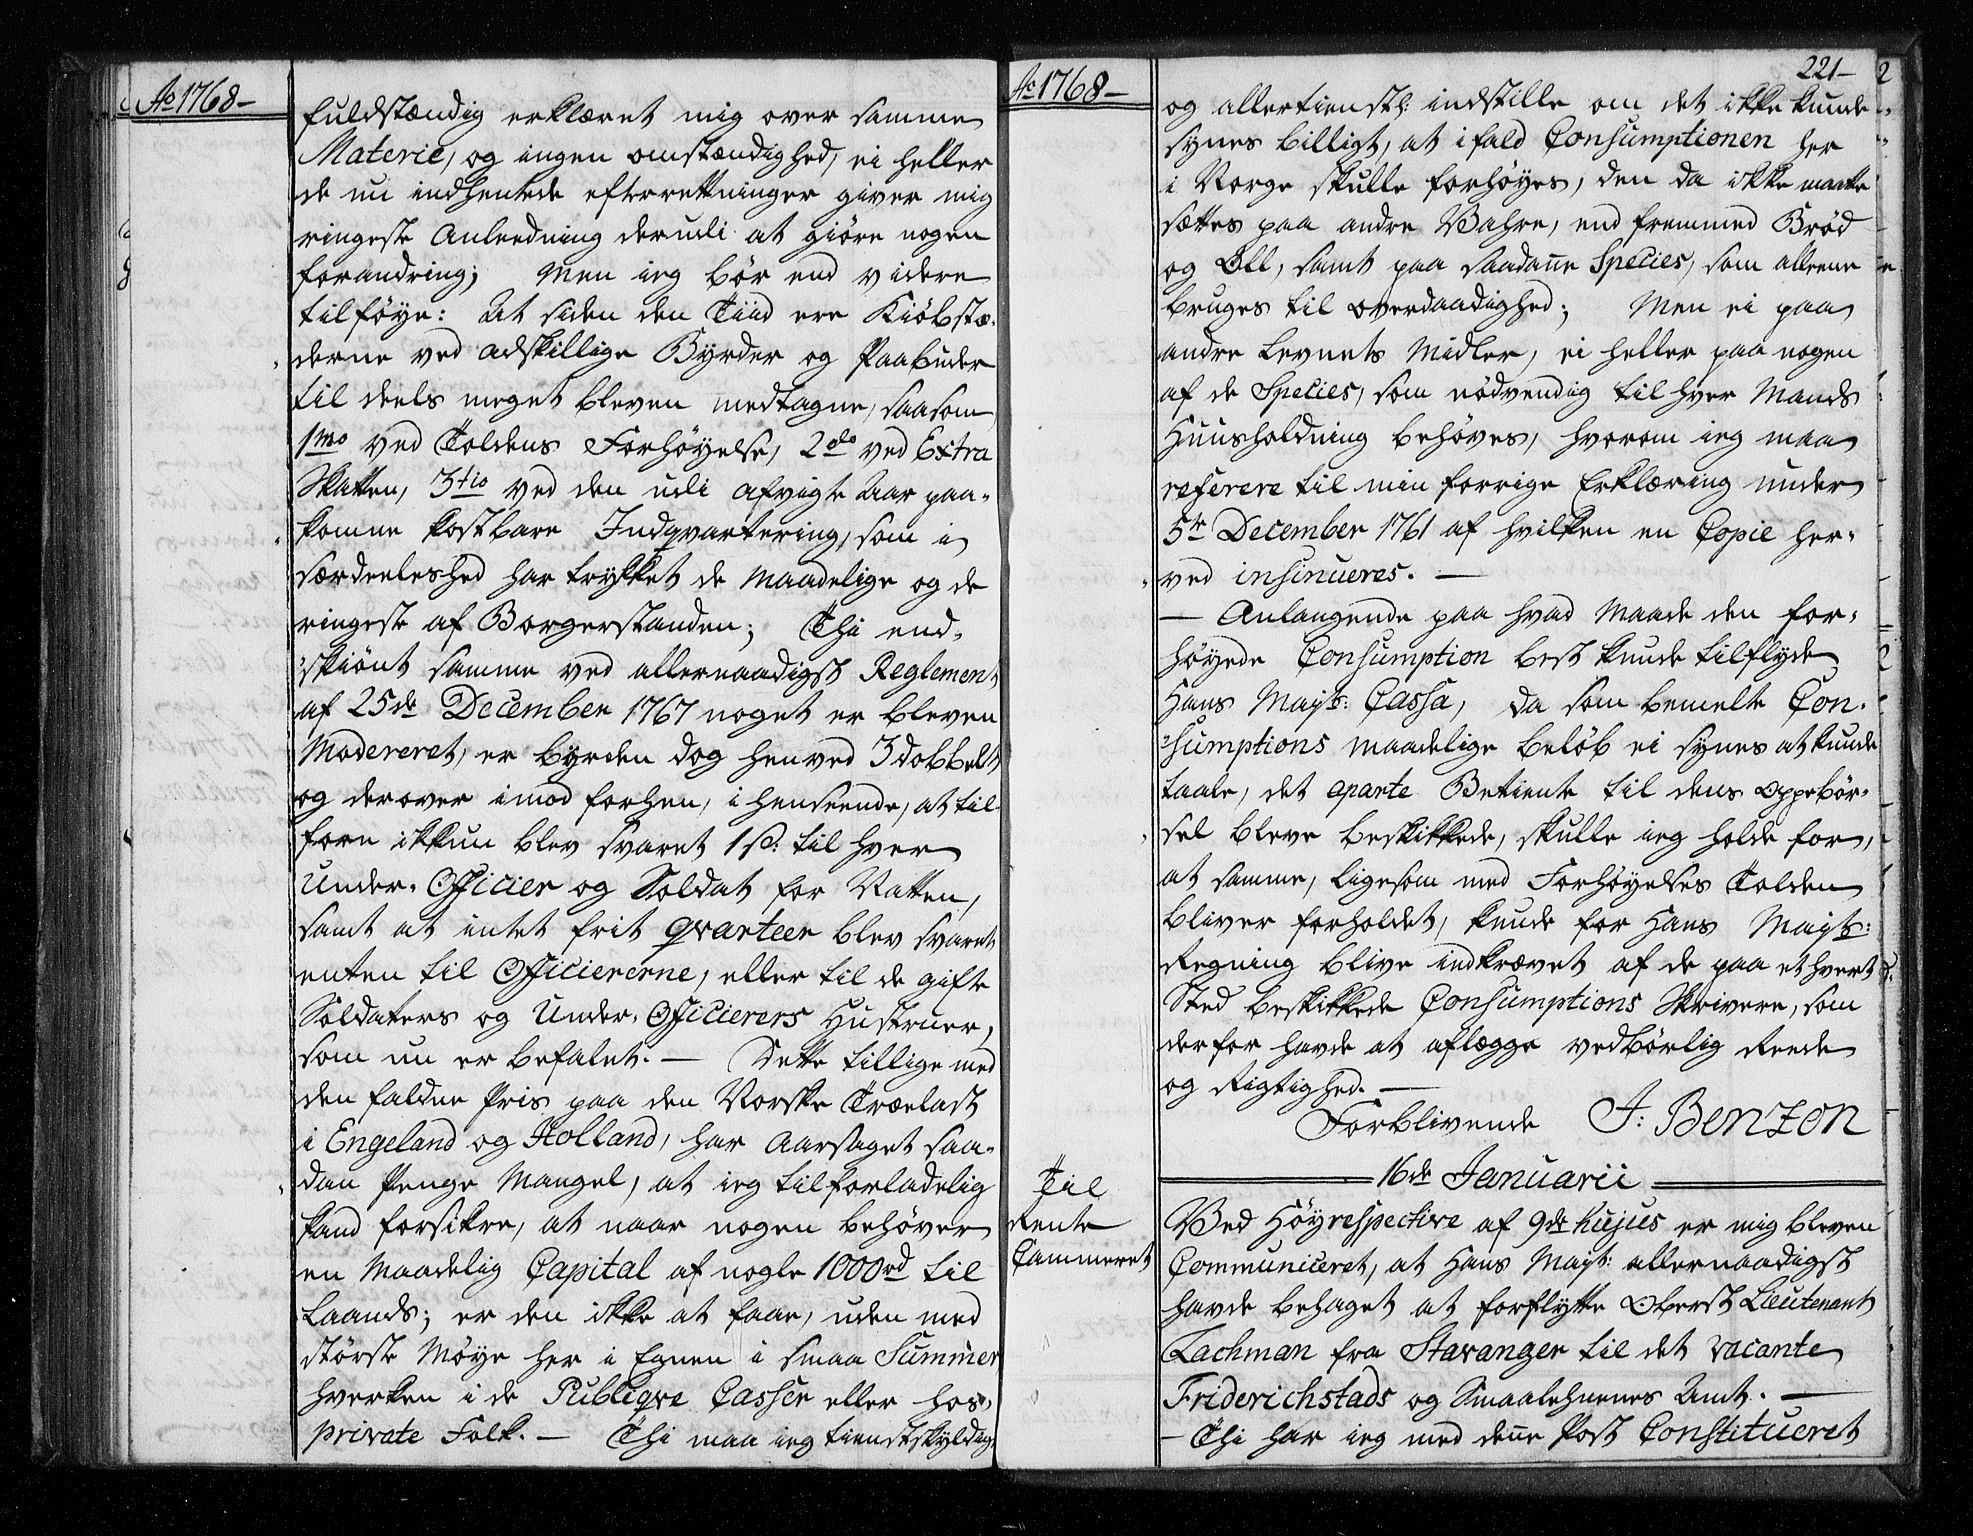 Ao 1768-
fuldstændig erklæret mig over samme
Materie, og ingen omstændighed, ei heller
de nu indhentede efterretninger giver mig
ringeste Anleedning derudi at giøre nogen
forandring; Men ieg bør end videre
tilføye: At siden den Tiid ere Kiøbstæ-
derne ved adskillige Byrder og Paabuder
til deels meget bleven medtagne, saasom
1mo ved Toldens Forhøyelse, 2do ved Extra
Skatten, 3tio ved den udi afvigte Aar paa-
komne kostbare Indqvartering, som i
særdeeleshed har trykket de Maadelige og de
ringeste af Borgerstanden; Thi end-
skiønt samme ved allernaadigst Reglement
af 25de December 1767 noget er bleven
Modereret, er byrden dog henved 3dobbelt
og derover imod forhen, i henseende, at til-
forn ikkun blev svaret 1 s: til hver
Under-Officier og Soldat for Natten,
samt at intet frit qvarteer blev svaret
enten til Officiererne, eller til de gifte
Soldaters og Under-Officierers Hustruer,
som nu er befalet. — Dette tillige med
den faldne Pris paa den Norske Trælast
i Engeland og Holland, har Aarsaget saa-
dan Penge Mangel, at ieg tilforladelig
kand forsikre, at naar nogen behøver
en Maadelig Capital af nogle 1000rd til
Laans; er den ikke at faae, uden med
største Møye her i Egnen i smaa Summer
hverken i de Publiqve Casser eller hos
private Folk. — Thi maa ieg tienstskyldig
Ao 1768-
221-
og allertienstl: indstille om det ikke kunde
synes billigt, at ifald Consumptionen her
i Norge skulle forhøyes, den da ikke maatte
sættes paa andre Vahre, end fremmed Brød
og Øll, samt paa saadanne Species, som alleene
bruges til overdaadighed; Men ei paa
andre Levnets Midler, ei heller paa nogen
af de Species, som nødvendig til hver Mands
Huusholdning behøves, hvorom ieg maa
referere til min forrige Erklæring under
5te December 1761 af hvilken en Copie her-
ved insinueres. —
— Anlangende paa hvad Maade den for-
høyede Consumption best kunde tilflyde
Hans Mayts: Cassa, da som bemelte Con-
sumptions maadelige beløb ei synes at kunde
taale, det aparte Betiente til dens Oppebør-
sel bleve beskikkede, skulle ieg holde for,
at samme, ligesom med Forhøyelses Tolden
bliver forholdet, kunde for Hans Mayts:
Regning blive indkrævet af de paa et hvert
Sted beskikkede Consumptions Skrivere, som
derfor havde at aflægge vedbørlig Reede
og Rigtighed. —
Forblivende J: Benzon
16de Januarii
Til
Rente
Cammeret
Ved Høyrespective af 9de hujus er mig bleven
Communiceret, at Hans Mayt: allernaadigst
havde behaget at forflytte Oberst Lieutenant
Lachman fra Stavanger til det vacante
Friderichstads og Smaalehnenes Amt. —
— Thi har ieg med denne Post Constitueret